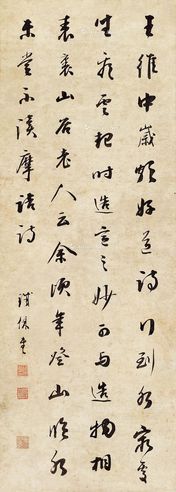 王維中歲頗好道詩行到水窮處
坐看雲起時造意之妙可與造物相
表裏山谷老人云余頃年登山臨水
未嘗不讀摩詰詩
鐵保書